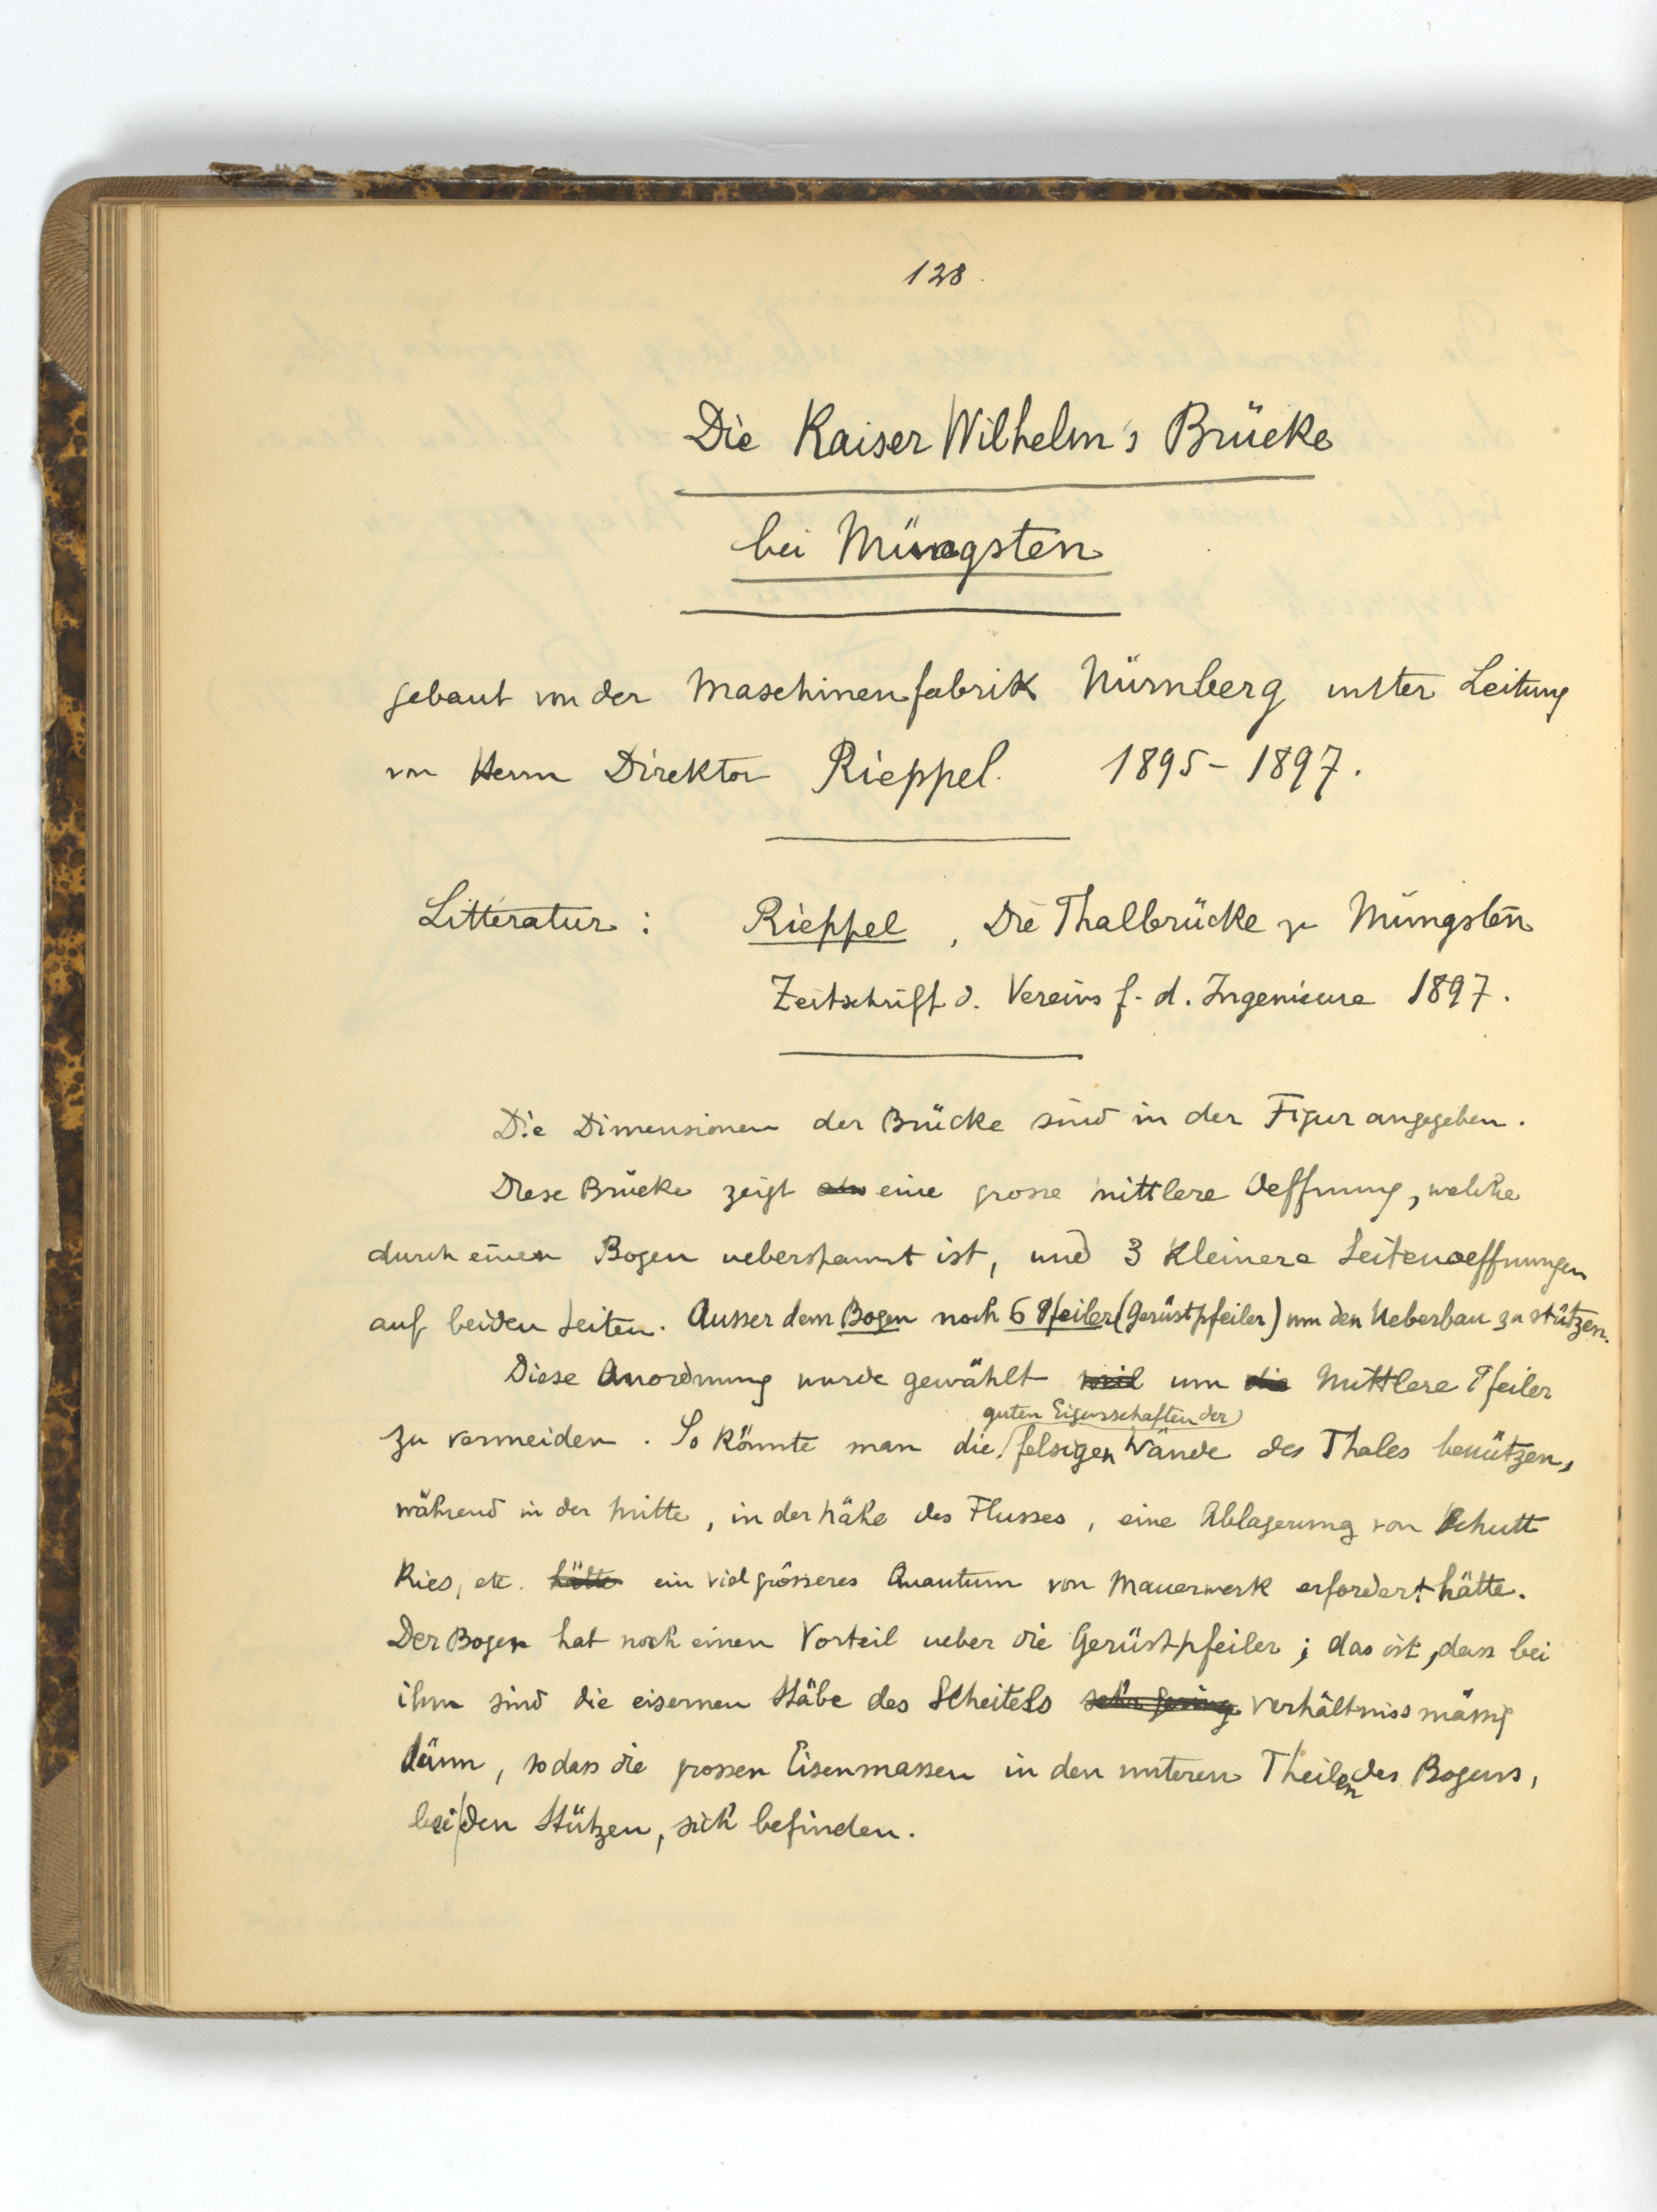 128.
Die Kaiser Wilhelm's Brücke
bei Müngsten
gebaut von der Maschinenfabrik Nürnberg unter Leitung
von Herrn Direktor Rieppel. 1895 - 1897.
Litteratur : Rieppel, Die Thalbrücke zu Müngsten
Zeitschrift d. Vereins f. d. Ingenieure 1897.
Die Dimensionen der Brücke sind in der Figur angegeben.
Diese Brücke zeigt eine grosse mittlere Oeffnung, welche
durch einen Bogen ueberspannt ist, und 3 kleinere Seitenoeffnungen
auf beiden Seiten. Ausser dem Bogen noch 6 Pfeiler (Gerüstpfeiler) um den Ueberbau zu stützen.
Diese Anordnung wurde gewählt weil um die mittlere Pfeiler
guten Eigenschaften der
zu vermeiden. So könnte man die felsigen Wände des Thales benützen,
während in der Mitte, in der Nähe des Flusses, eine Ablagerung von Schutt
Kies, etc. hätte ein viel grösseres Quantum von Mauerwerk erfordert hätte.
Der Bogen hat noch einen Vorteil ueber die Gerüstpfeiler; das ist, dass bei
ihm sind die eisernen Stäbe des Scheitels sehr gering verhältnissmässig
dünn, sodass die grossen Eisenmassen in den unteren Theilen des Bogens,
bei den Stützen, sich befinden.